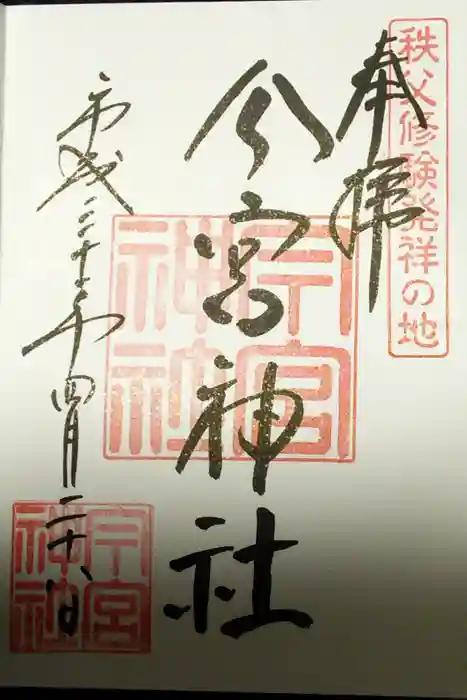 秩父修験発祥の地
奉拝
今宮神社
今宮
神社
平成二十七年四月二十八日
今宮
神社